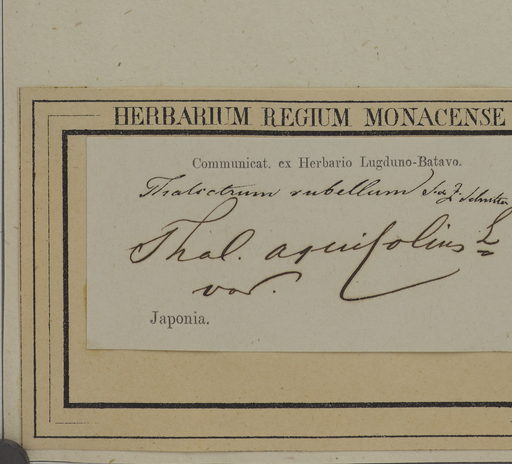 HERBARIUM REGIUM MONACENSE
Communicat. ex Herbario Lugduno-Batavo.
Thalictrum rubellum S. & Z.
Thal. aquifolius L
var.
Japonia.